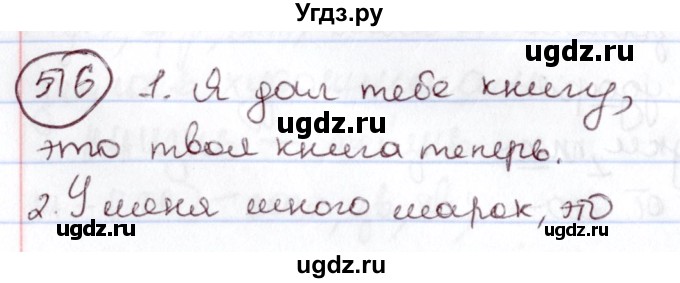 Угдз.ру
ugdz.ru ugdz.ru
516 1. Я дал тебе книгу,
ugdz.ru
это твоя книга теперь.
ugdz.ru ugdz.ru
2. У меня много марок, это
ugdz.ru ugdz.ru
ugdz.ru